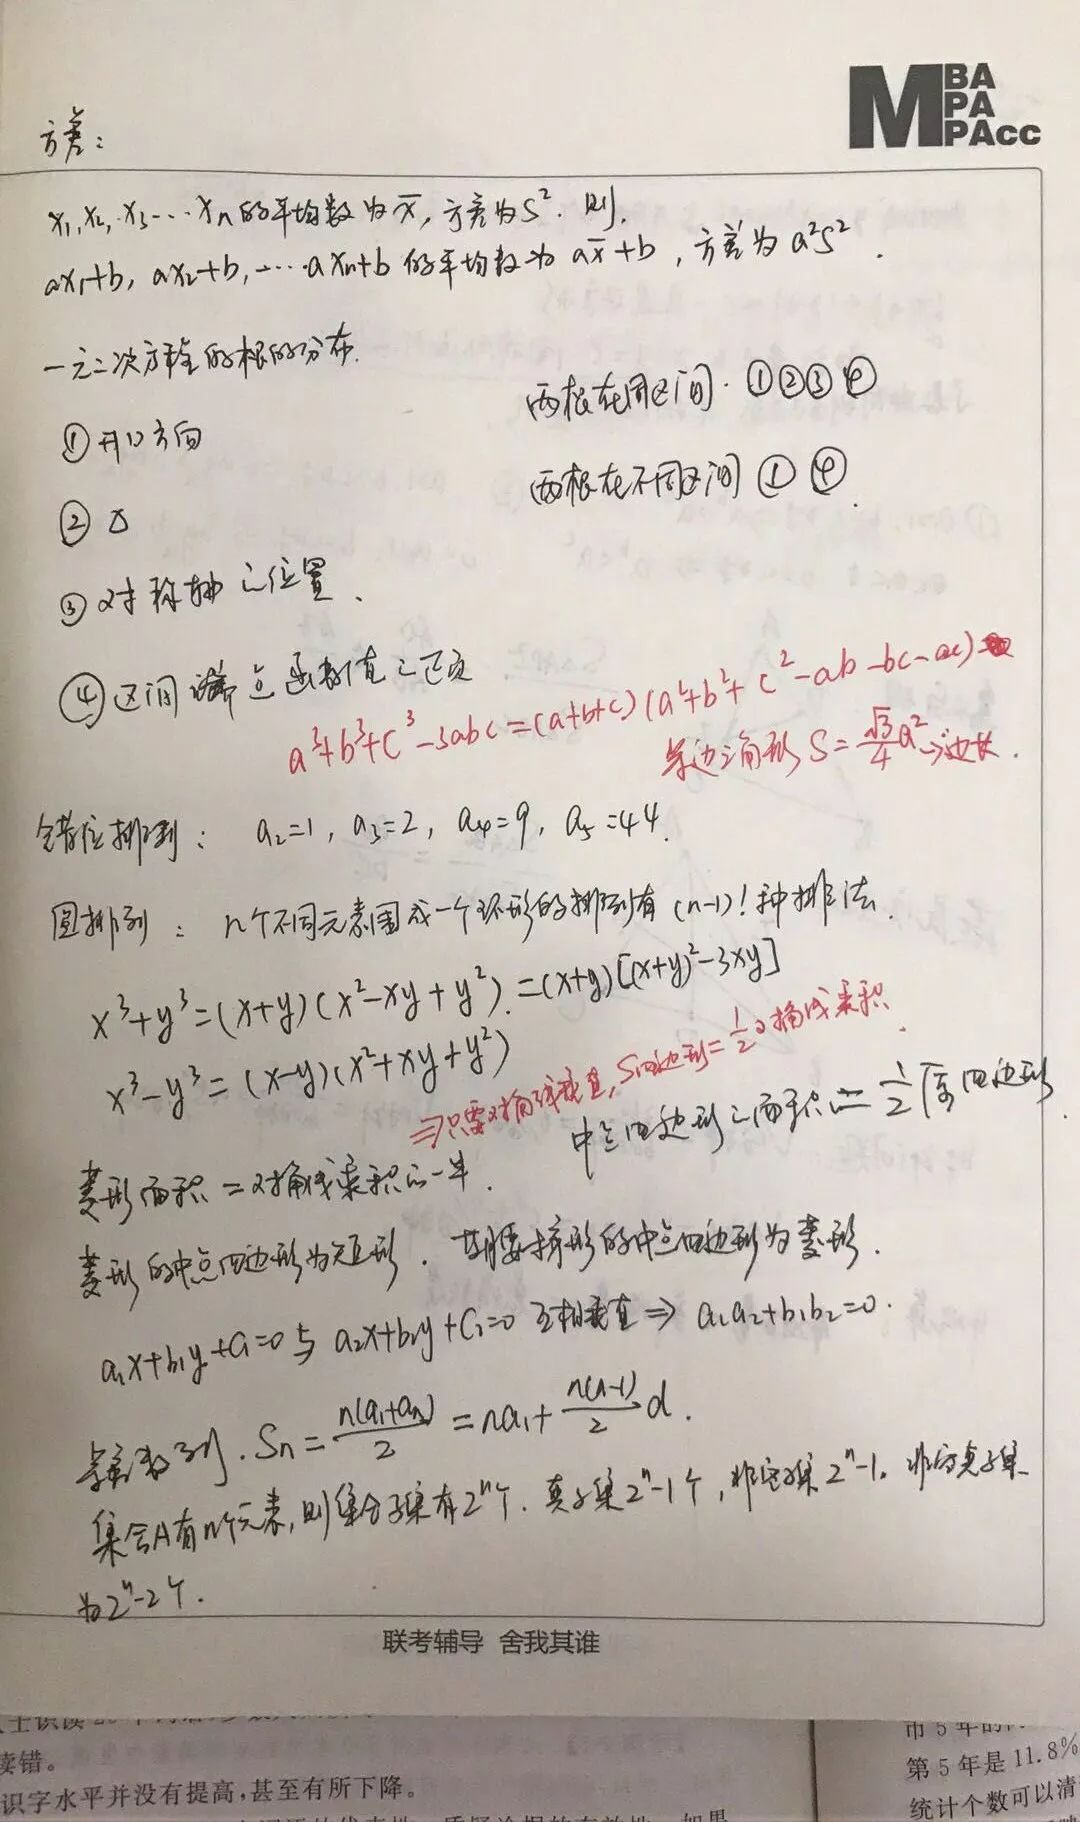 MBA
MPA
MPAcc
方差：
x₁,x₂,x₃…xₙ的平均数为x̄，方差为S²．则．
ax₁+b，ax₂+b，…axₙ+b的平均数为ax̄+b，方差为a²S²．
一元二次方程的根的分布．
两根在同区间．①②③④
①开口方向
两根在不同区间①④．
②△
③对称轴之位置、
④区间端点函数值之正负
a³+b³+c³-3abc=(a+b+c)(a²+b²+c²-ab-bc-ac)
等边三角形S=√3/4 a²→边长．
错位排列：a₂=1，a₃=2，a₄=9，a₅=44．
圆排列：n个不同元素围成一个环形的排列有(n-1)!种排法．
x³+y³=(x+y)(x²-xy+y²)．=(x+y)[(x+y)²-3xy]
x³-y³=(x-y)(x²+xy+y²)
⇒只需对角线垂直，S四边形=1/2对角线乘积．
中点四边形之面积=1/2原四边形
菱形面积=对角线乘积的一半．
菱形的中点四边形为矩形．等腰梯形的中点四边形为菱形．
a₁x+b₁y+c₁=0与a₂x+b₂y+c₂=0互相垂直⇒a₁a₂+b₁b₂=0．
等差数列．Sₙ=n(a₁+aₙ)/2=na₁+n(n-1)/2 d．
集合A有n个元素，则集合子集有2ⁿ个．真子集2ⁿ-1个，非空子集2ⁿ-1．非空真子集
为2ⁿ-2个．
联考辅导 舍我其谁
读错。
识字水平并没有提高，甚至有所下降。
市5年的
第5年是11.8%
统计个数可以清